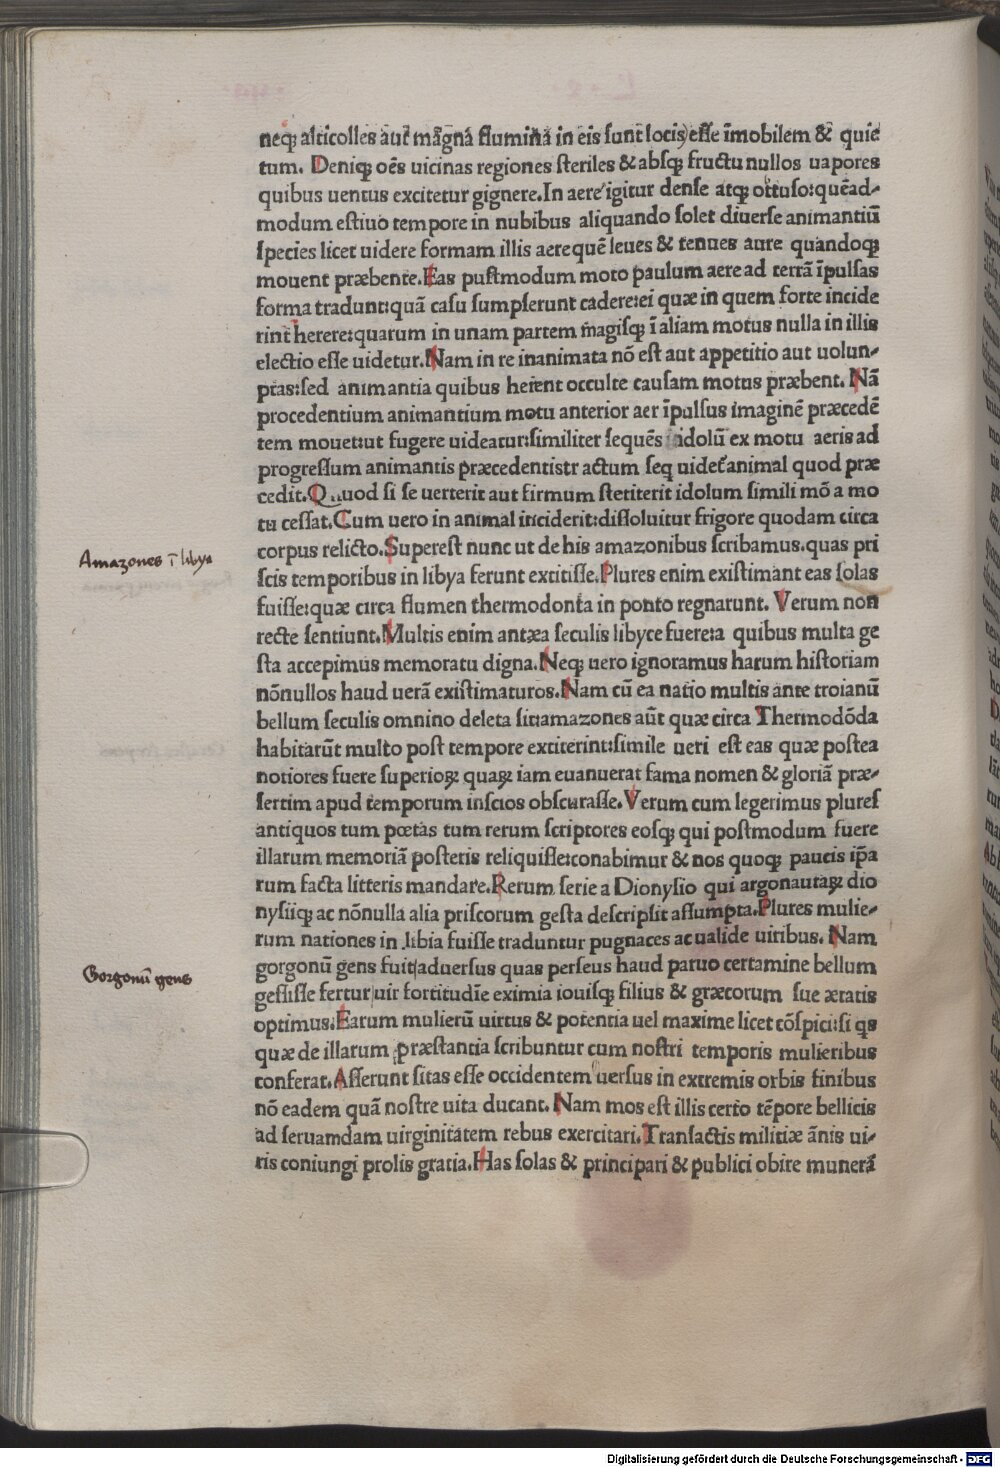 neq; alticolles aut magna flumina in eis sunt locis) esse imobilem & quie
tum. Deniq; oēs uicinas regiones steriles & absq; fructu nullos uapores
quibus uentus excitetur gignere. In aere igitur dense atq; ottuso: quēad-
modum estiuo tempore in nubibus aliquando solet diuerse animantiū
species licet uidere formam illis aereque leues & tenues aure quandoq;
mouent præbente. Eas pustmodum moto paulum aere ad terrā īpulsas
forma tradunt: quā casu sumpserunt cadere: ei quæ in quem forte incide
rint herere: quarum in unam partem magisq; ī aliam motus nulla in illis
electio esse uidetur. Nam in re inanimata nō est aut appetitio aut uolun-
ptas: sed animantia quibus herent occulte causam motus præbent. Nā
procedentium animantium motu anterior aer īpulsus imaginē præcedē
tem mouet: ut fugere uideatur: similiter sequēs idolū ex motu aeris ad
progressum animantis præcedentistr actum seq uidet animal quod præ
cedit. Quod si se uerterit aut firmum stetiterit idolum simili mō a mo
tu cessat. Cum uero in animal inciderit: dissoluitur frigore quodam circa
Amazones ī libya
corpus relicto. Superest nunc ut de his amazonibus scribamus. quas pri
scis temporibus in libya ferunt extitisse. Plures enim existimant eas solas
fuisse: quæ circa flumen thermodonta in ponto regnarunt. Verum non
recte sentiunt. Multis enim antæa seculis libyce fuere: a quibus multa ge
sta accepimus memoratu digna. Neq; uero ignoramus harum historiam
nōnullos haud uerā existimaturos. Nam cū ea natio multis ante troianū
bellum seculis omnino deleta sit: amazones aūt quæ circa Thermodōda
habitarūt multo post tempore extiterint: simile ueri est eas quæ postea
notiores fuere superioꝝ quaꝝ iam euanuerat fama nomen & gloriā præ-
sertim apud temporum inscios obscurasse. Verum cum legerimus plures
antiquos tum pœtas tum rerum scriptores eosq; qui postmodum fuere
illarum memoriā posteris reliquisse: conabimur & nos quoq; paucis ip̄a
rum facta litteris mandare. Rerum serie a Dionysio qui argonautaꝝ dio
nysiiq; ac nōnulla alia priscorum gesta descripsit assumpta. Plures mulie-
rum nationes in libia fuisse traduntur pugnaces ac ualide uiribus. Nam
Gorgonū gens
gorgonū gens fuit aduersus quas perseus haud paruo certamine bellum
gessisse fertur uir fortitudīe eximia iouisq; filius & græcorum sue ætatis
optimus. Earum mulierū uirtus & potentia uel maxime licet cōspici: si qs
quæ de illarum præstantia scribuntur cum nostri temporis mulieribus
conferat. Asserunt sitas esse occidentem uersus in extremis orbis finibus
nō eadem quā nostre uita ducant. Nam mos est illis certo tēpore bellicis
ad seruamdam uirginitatem rebus exercitari. Transactis militiæ ānis ui-
ris coniungi prolis gratia. Has solas & principari & publici obire munerā
Digitalisierung gefördert durch die Deutsche Forschungsgemeinschaft - DFG